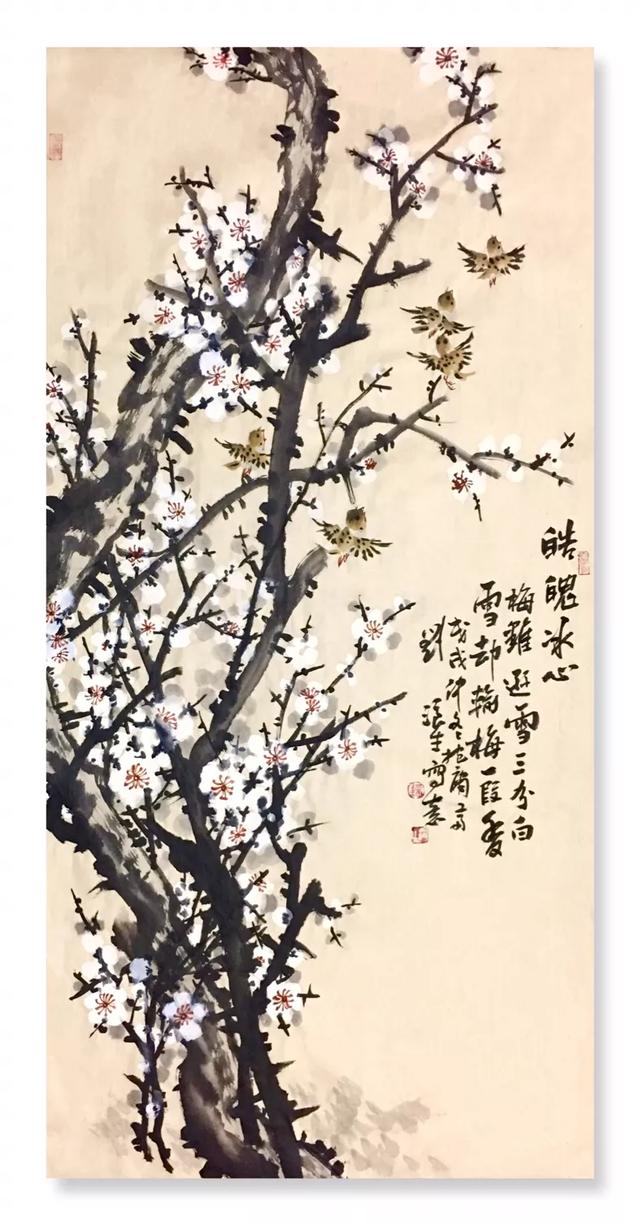 皓魄冰心
梅雖遜雪三分白
雪却輸梅一段香
戊戌仲冬
劉 生寫意